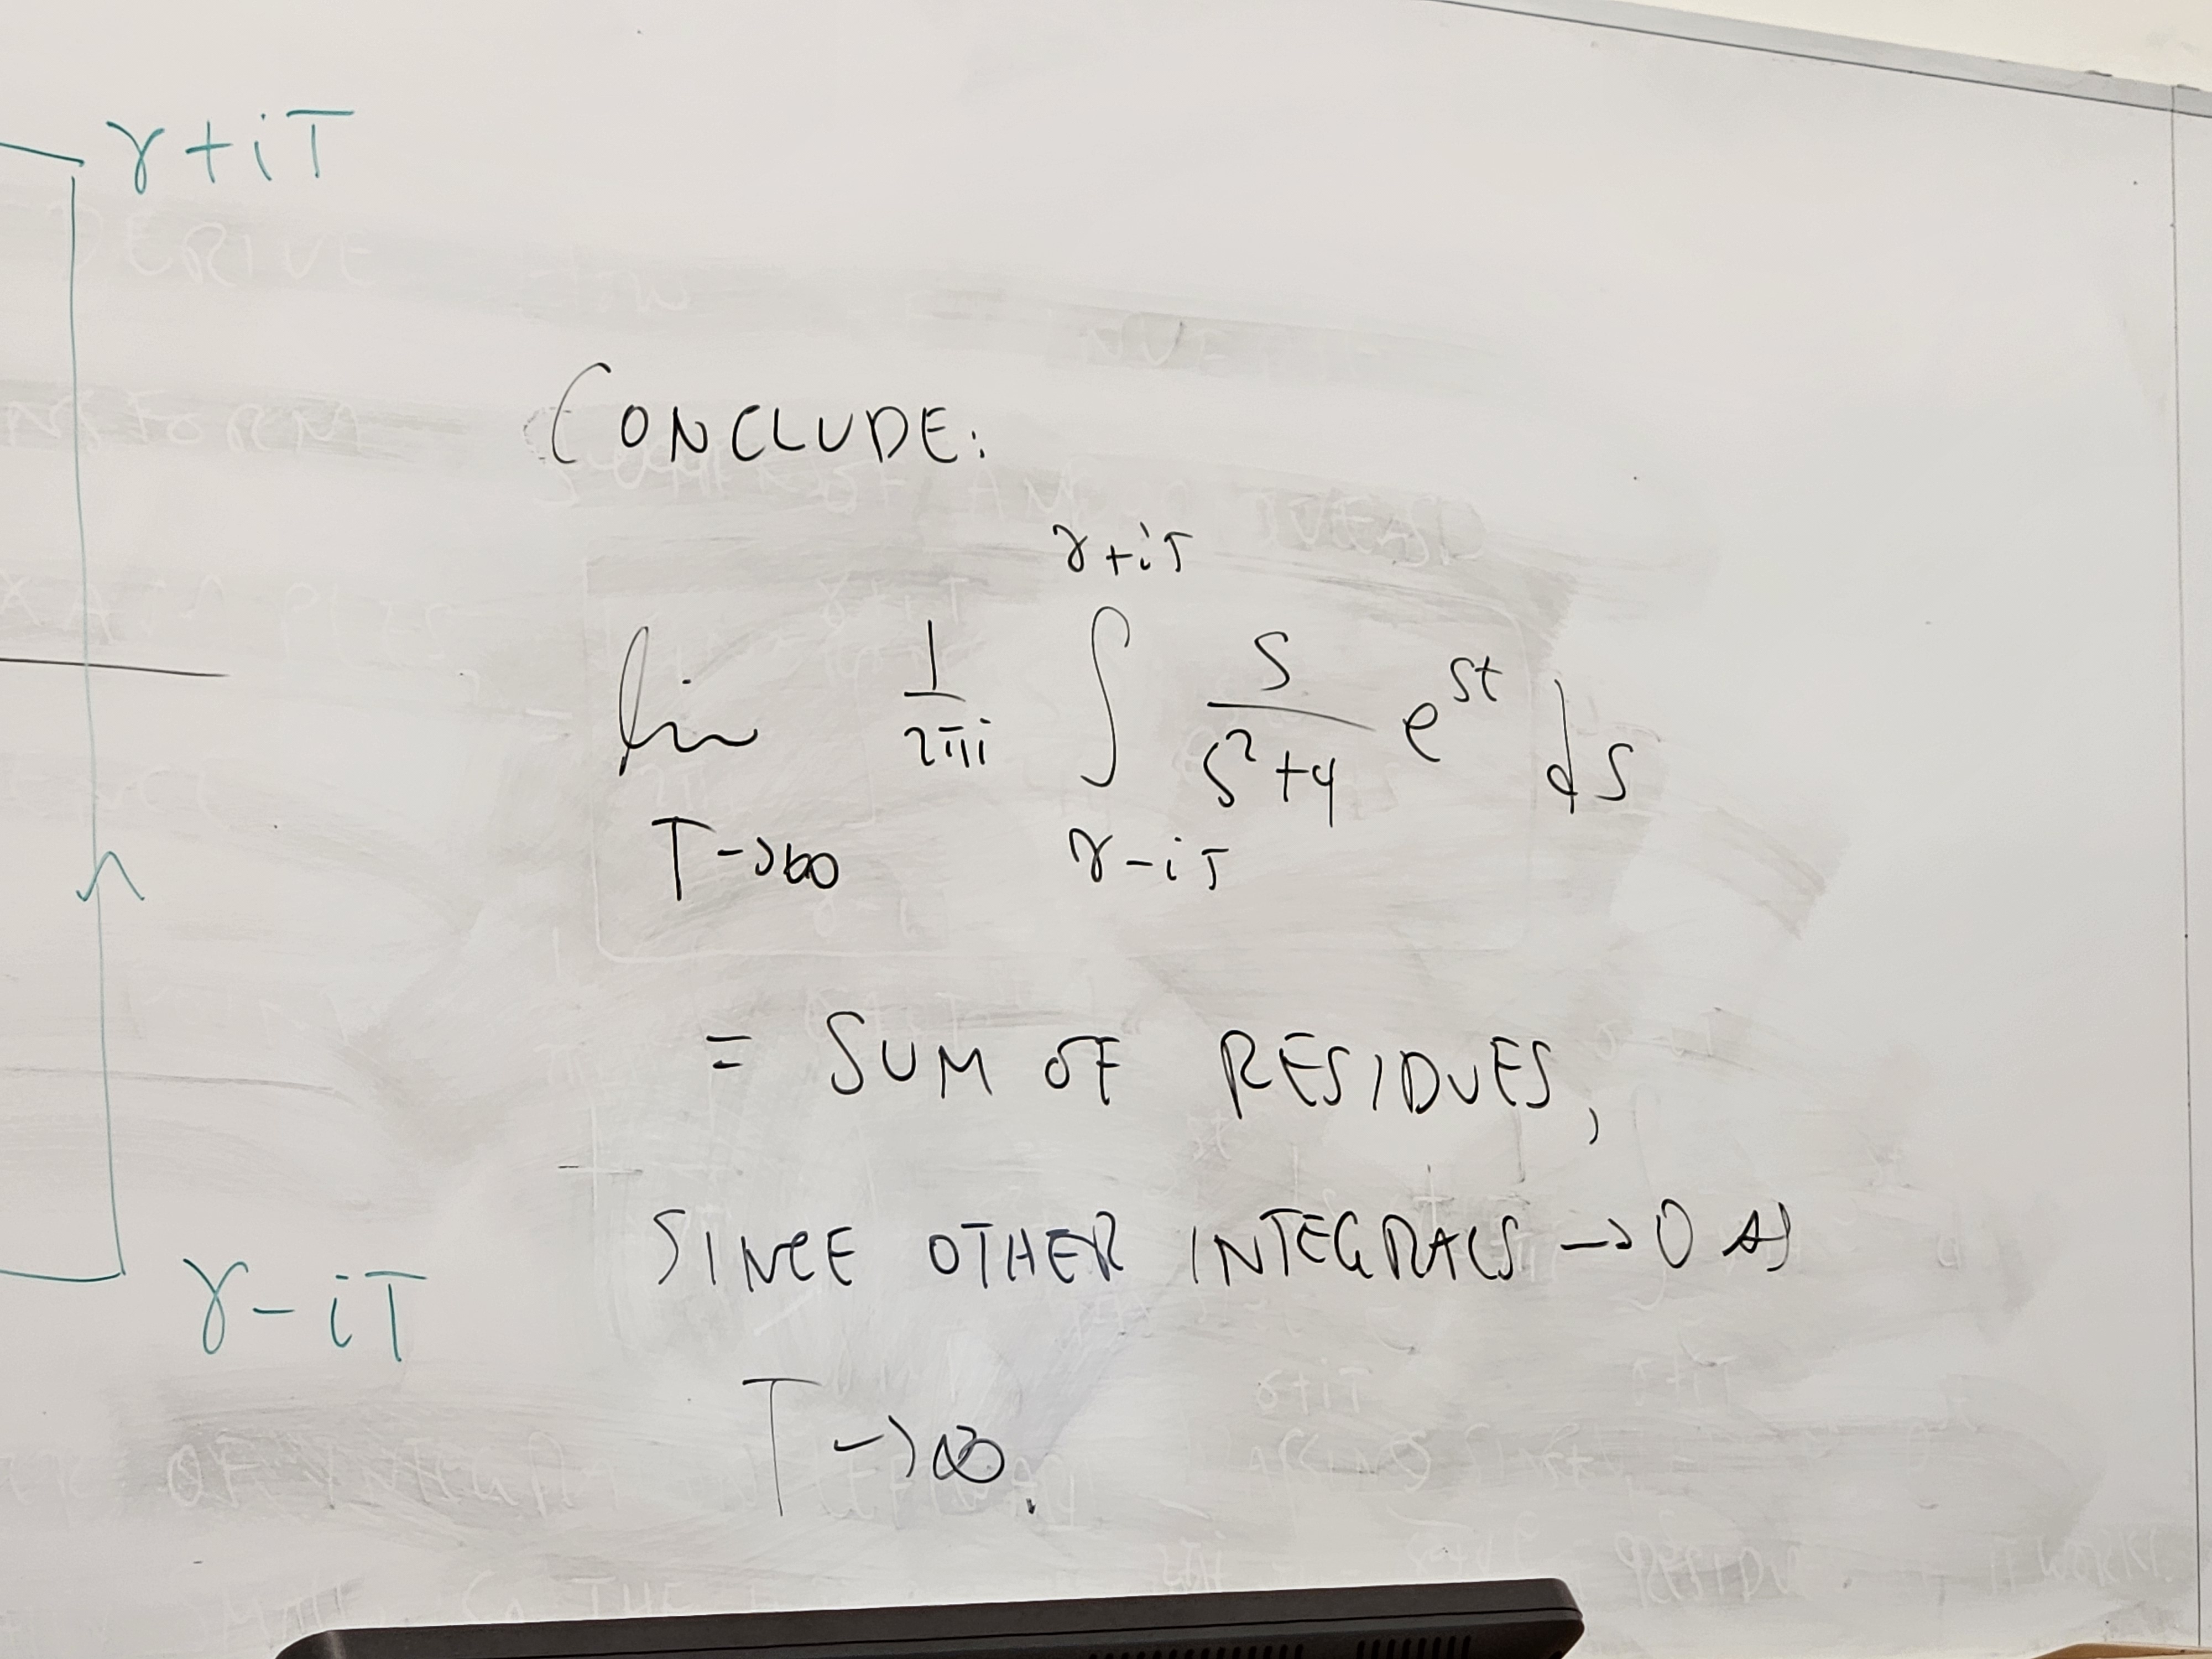 γ+iT
CONCLUDE:
lim 1/2πi ∫ γ-iT γ+iT s/s²+4 e^st ds
T→∞
= SUM OF RESIDUES,
SINCE OTHER INTEGRALS →0 AS
γ-iT
T→∞.